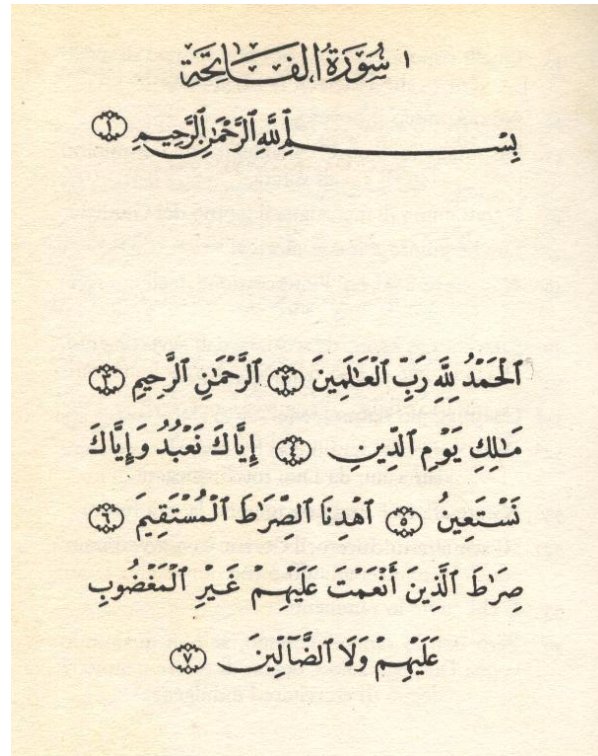 ١ سُورَةُ الفَاتِحَةِ
بِسْمِ اللَّهِ الرَّحْمَٰنِ الرَّحِيمِ ١
الْحَمْدُ لِلَّهِ رَبِّ الْعَالَمِينَ ٢ الرَّحْمَٰنِ الرَّحِيمِ ٣
مَٰلِكِ يَوْمِ الدِّينِ ٤ إِيَّاكَ نَعْبُدُ وَإِيَّاكَ
نَسْتَعِينُ ٥ اهْدِنَا الصِّرَٰطَ الْمُسْتَقِيمَ ٦
صِرَٰطَ الَّذِينَ أَنْعَمْتَ عَلَيْهِمْ غَيْرِ الْمَغْضُوبِ
عَلَيْهِمْ وَلَا الضَّآلِّينَ ٧